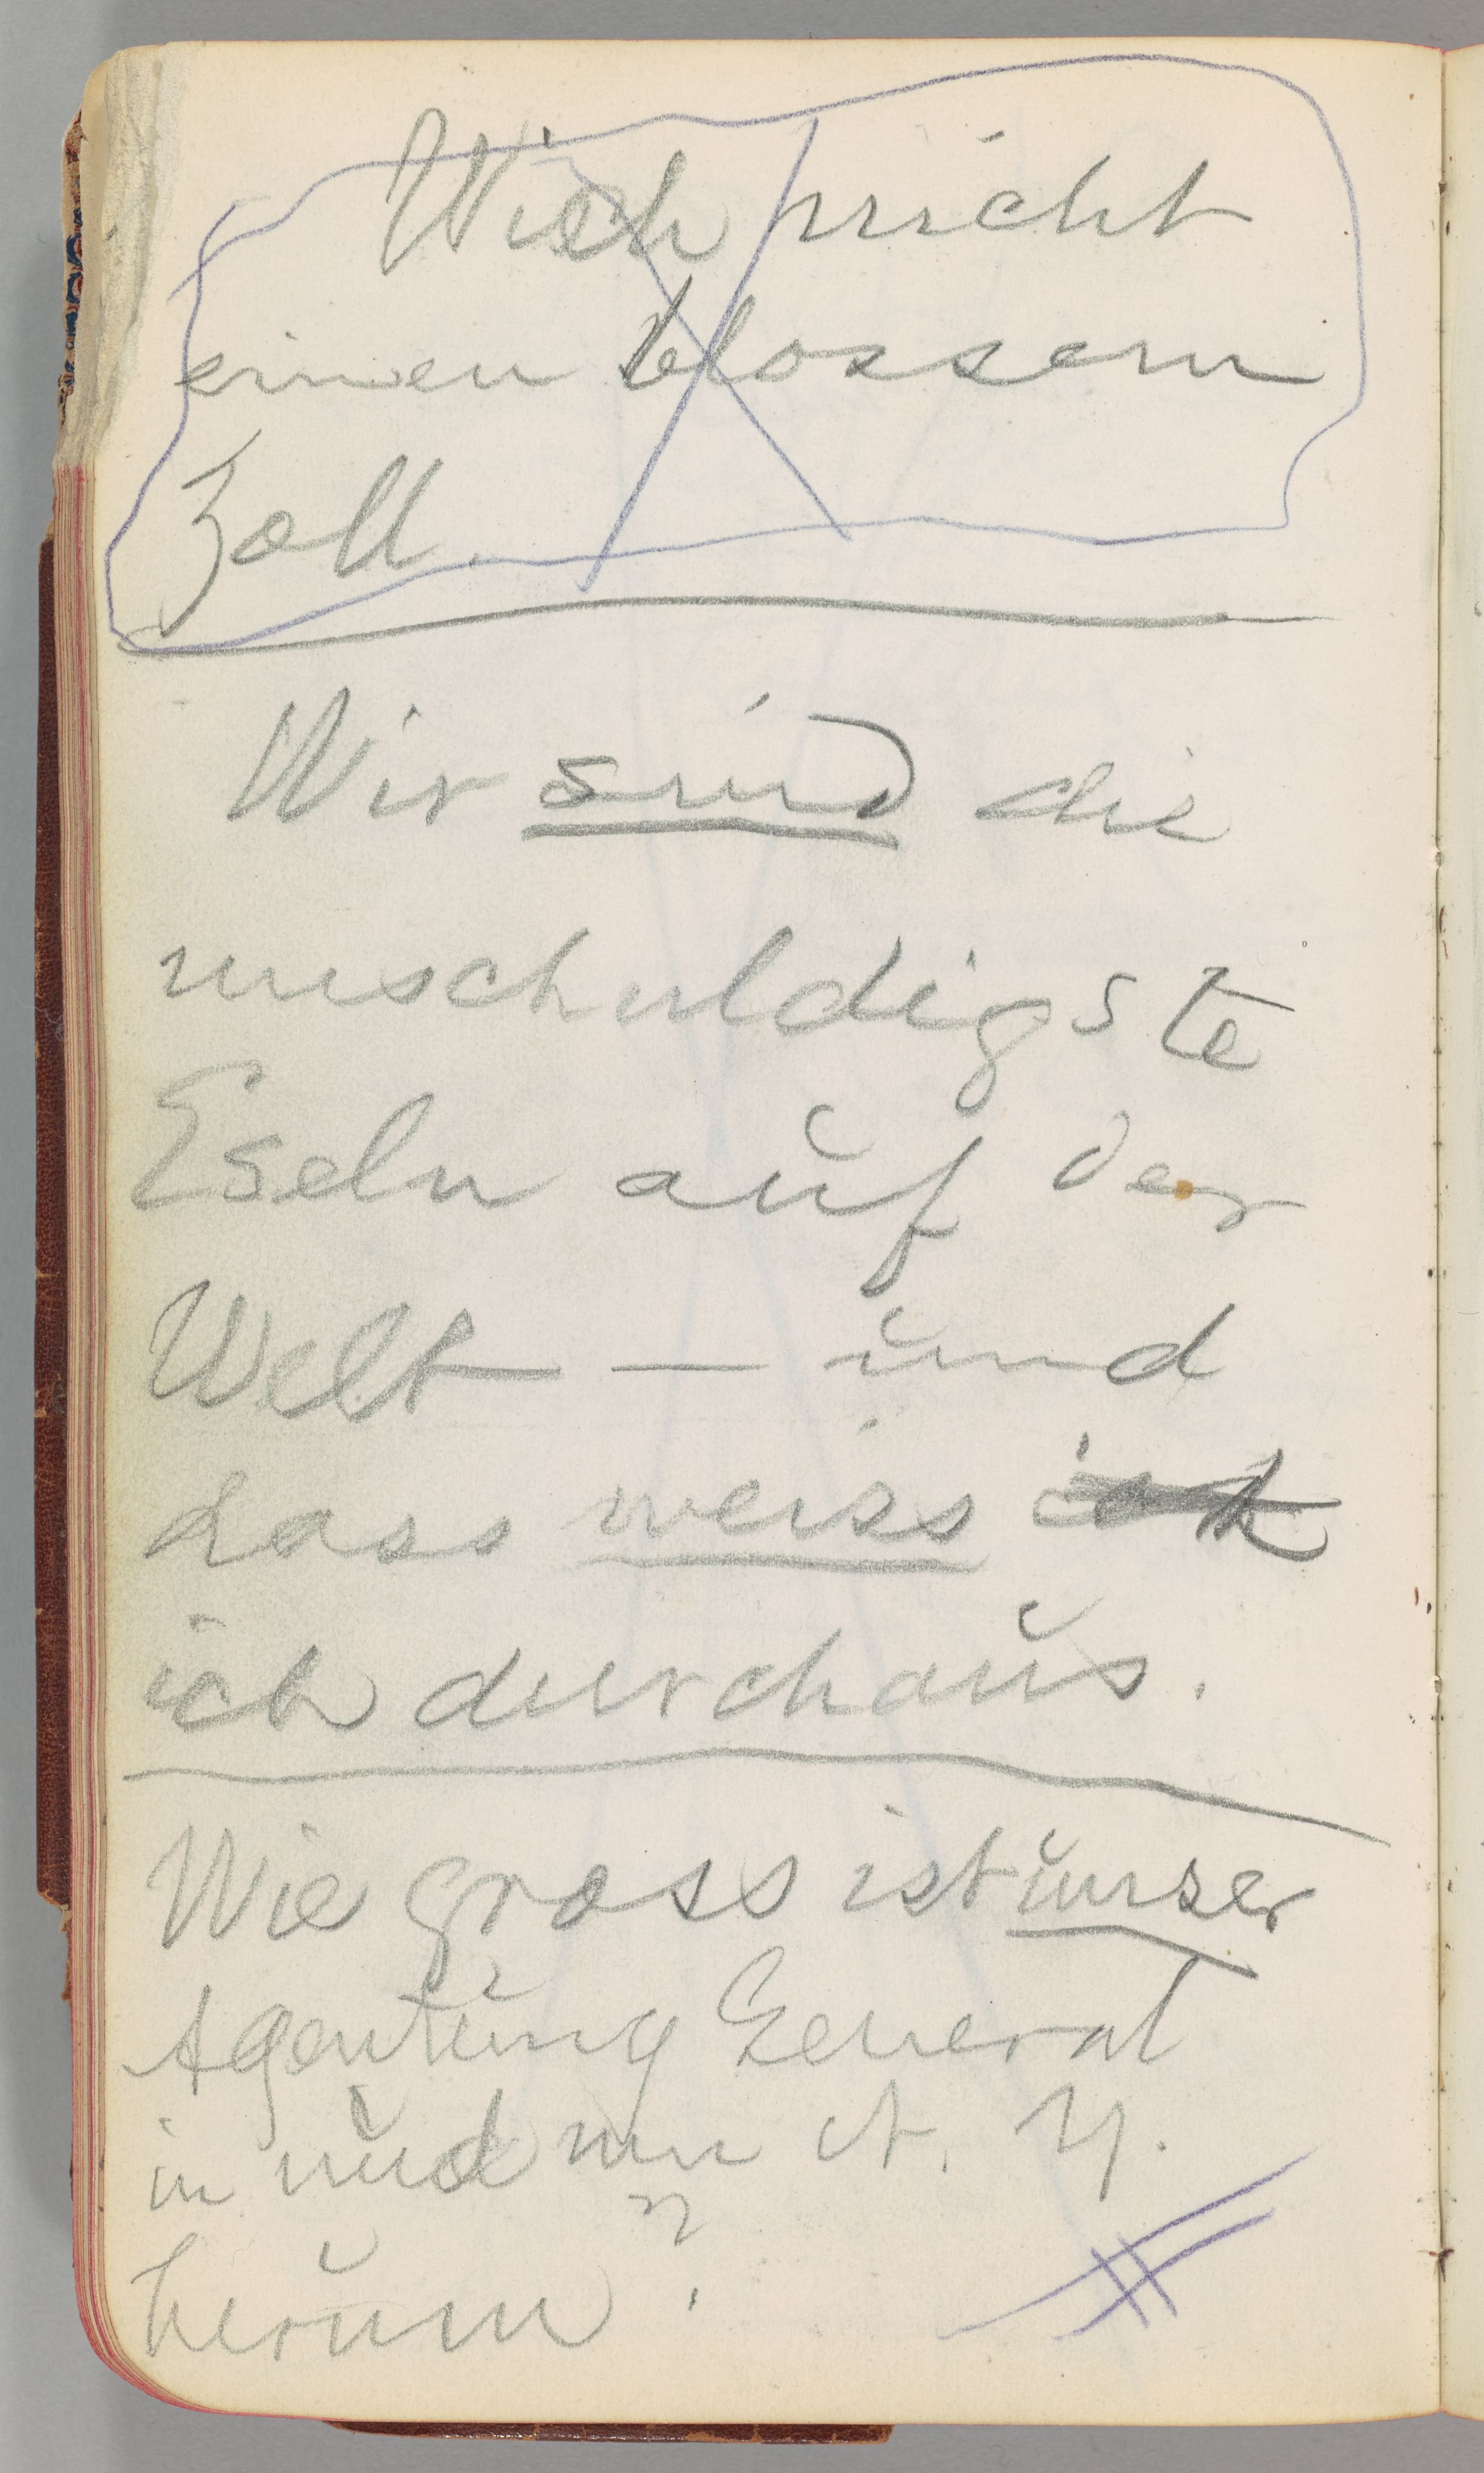 Wich nicht
einen blossem
Zoll.
Wir sind die
unschuldigste
Eseln auf der
Welt — und
dass weiss ich
ich durchaus.
Wie gross ist unser
Agentung General
in und um N. Y.
herum?